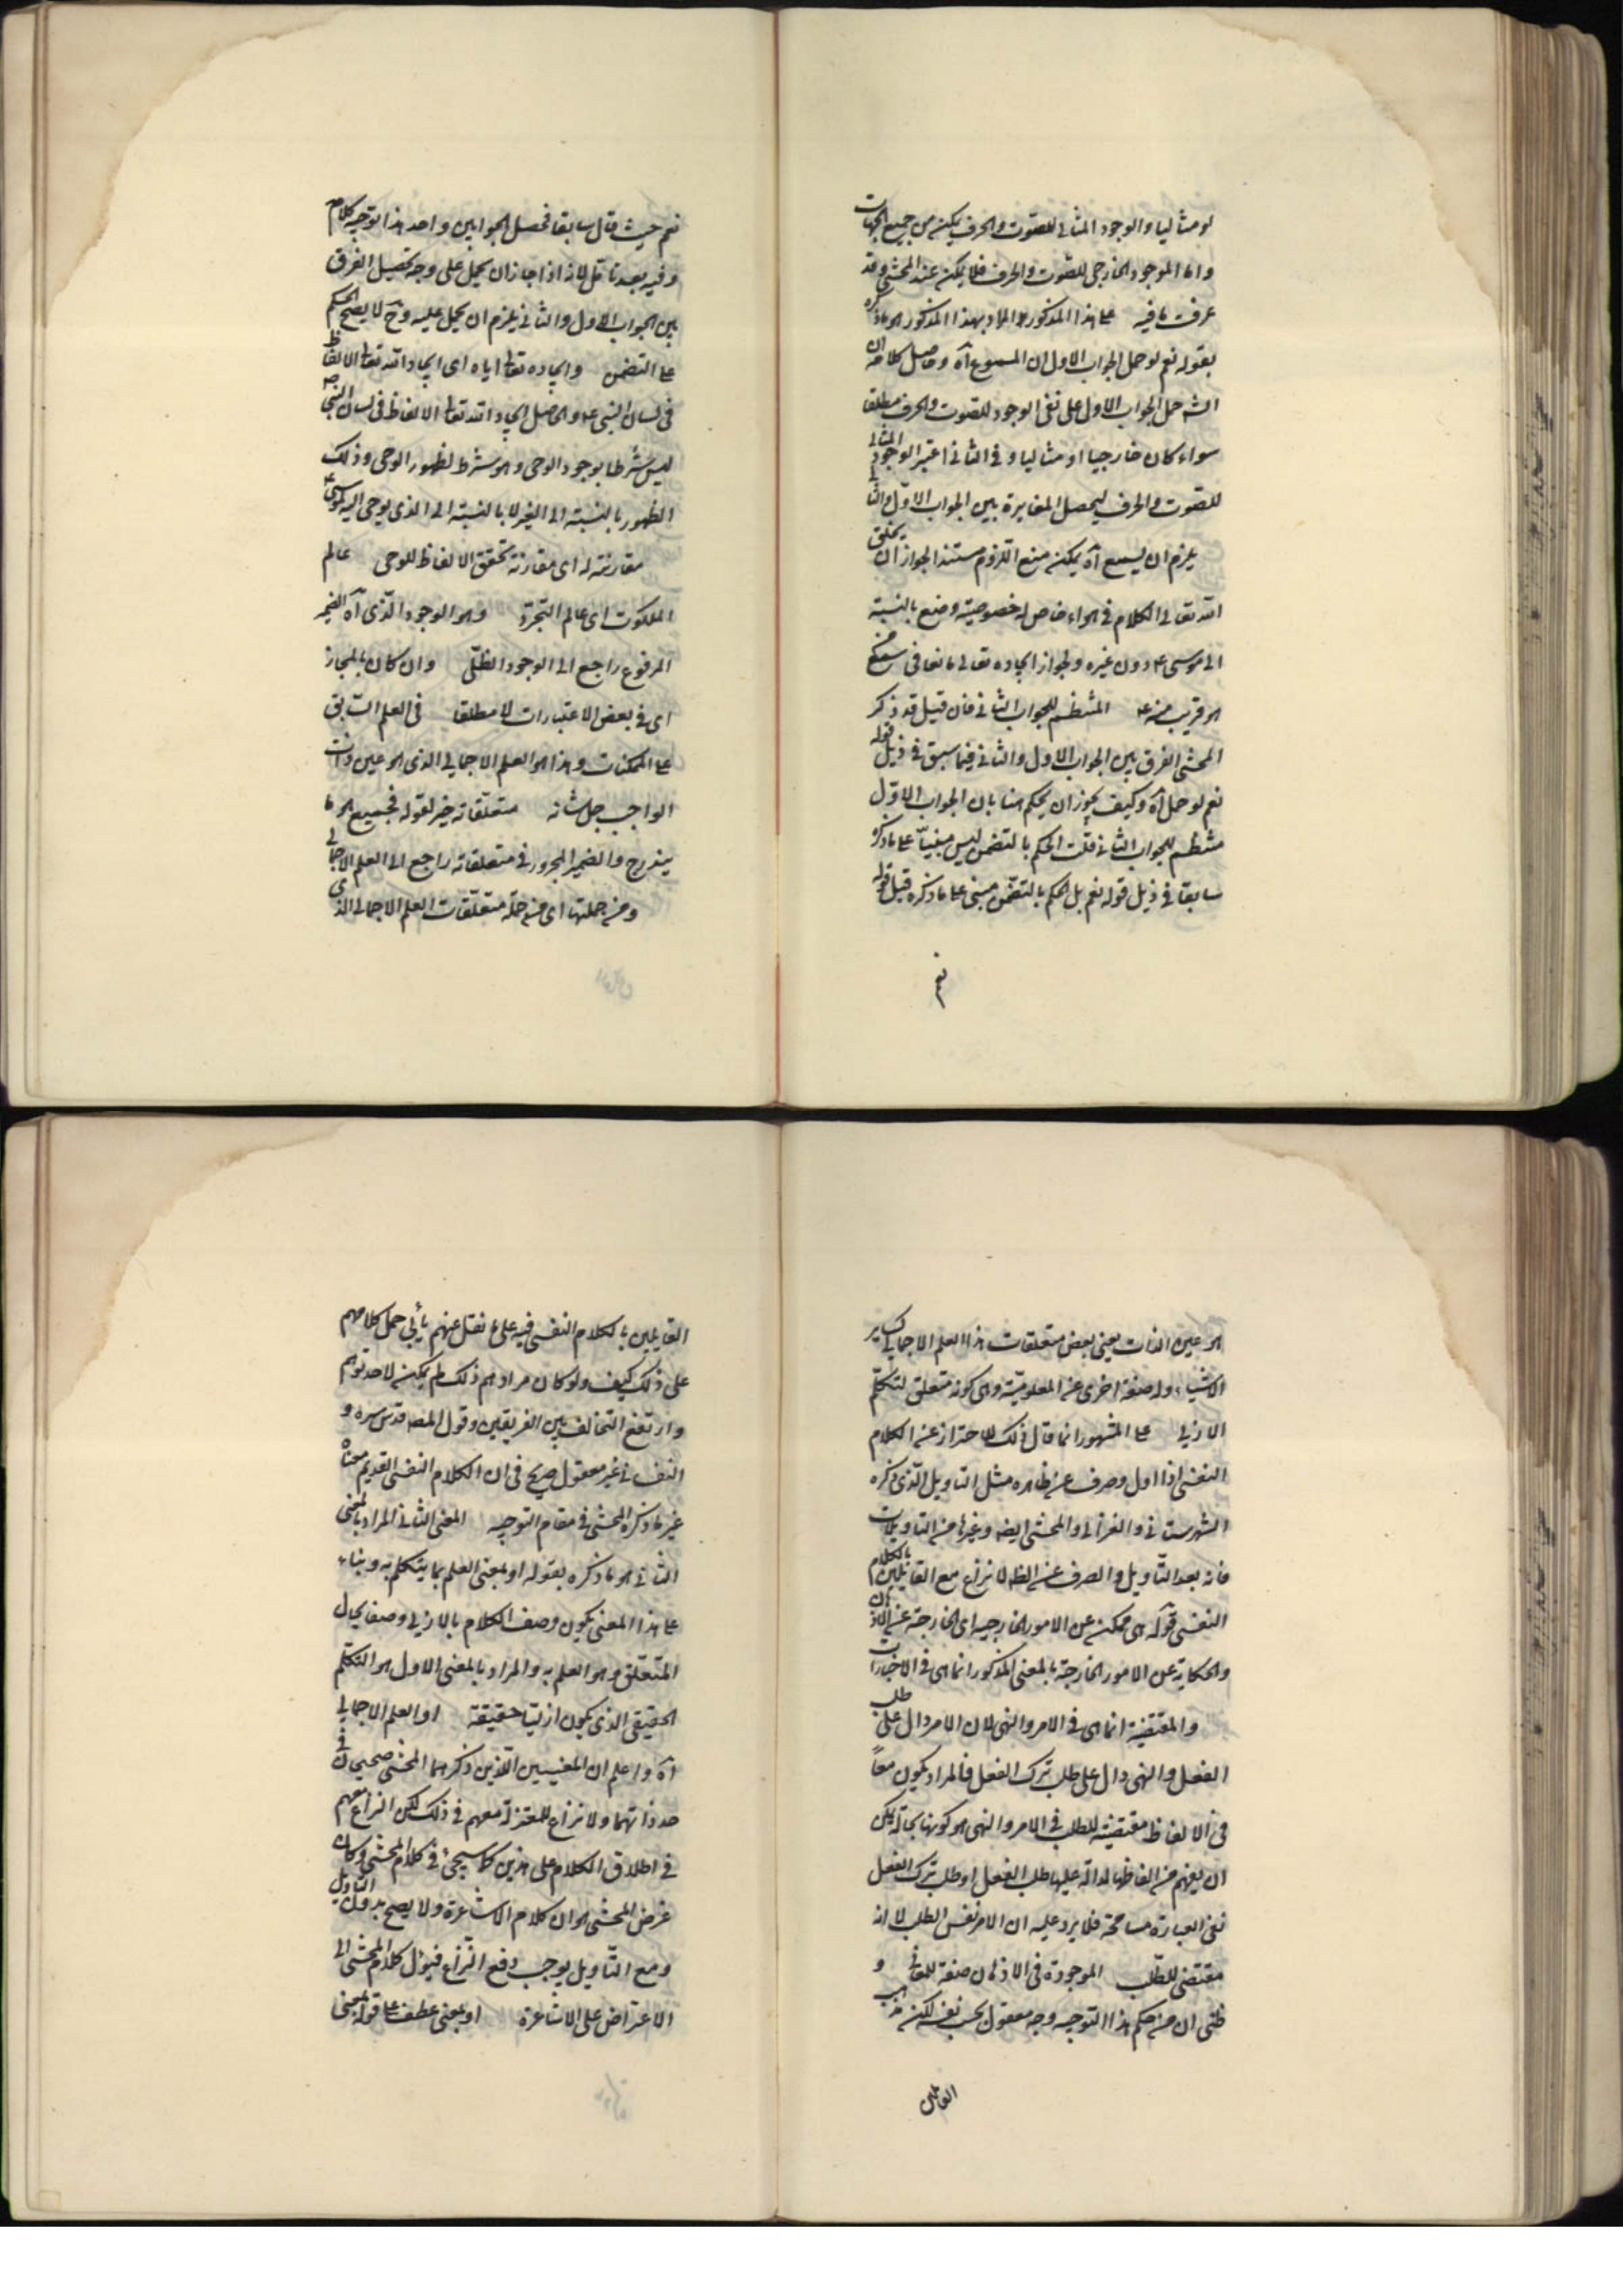 لو مثاليا والوجود المثالى للصوت والحرف يمكن من جميع الجهات
واما الموجود الخارجى للصوت والحرف فلا يمكن عند المحشى وقد
عرفت ما فيه على هذا المذكور المراد بهذا المذكور هو ما ذكره
بقوله نعم لو حمل الجواب الاول ان المسموع آه وحاصل كلامه ان
الش حمل الجواب الاول على نفى الوجود للصوت والحرف مطلقا
سواء كان خارجيا او مثاليا وفى الثانى اعتبر الوجود المثالى
للصوت والحرف ليحصل المغايرة بين الجواب الاول والثانى
يلزم ان يسمع آه يمكن منع اللزوم مستندا لجواز ان يخلق
الله تعالى الكلام فى هواء خاص له خصوصية وضع بالنسبة
الى موسى ع دون غيره ولجواز ايجاده تعالى مانعا فى سمع من
هو قريب منه ع المتضمن للجواب الثانى فان قيل قد ذكر
المحشى الفرق بين الجواب الاول والثانى فيما سبق فى ذيل قوله
نعم لو حمل آه وكيف يجوز ان يحكم هنا بان الجواب الاول
متضمن للجواب الثانى قلت الحكم بالتضمن ليس مبنيا على ما ذكره
سابقا فى ذيل قوله نعم بل الحكم بالتضمن مبنى على ما ذكره قبل قوله
نعم
نعم حيث قال سابقا فحصل الجوابين واحد هذا توجيه كلامه
وفيه بعد تأمل لانه اذا جاز ان يحمل على وجه يحصل الفرق
بين الجواب الاول والثانى فيلزم ان يحمل عليه وح لا يصح الحكم
على التضمن وايجاده تعالى اياه اى ايجاد الله تعالى الالفاظ
فى لسان النبى ع والحاصل ايجاد الله تعالى الالفاظ فى لسان النبى ص
ليس شرطا بوجود الوحى وهو شرط لظهور الوحى وذلك
الظهور بالنسبة الى الغير لا بالنسبة الى الذى يوحى اليه كموسى ع
مقارنته له اى مقارنة تحقق الالفاظ للوحى عالم
الملكوت اى عالم التجرد وهو الوجود الذى آه الضمير
المرفوع راجع الى الوجود الظلى وان كان بالمجاز
اى فى بعض الاعتبارات لا مطلقا فى العلم السابق
على الممكنات وهذا هو العلم الاجمالى الذى هو عين ذات
الواجب جل شانه متعلقاته خبر لقوله فجميع ما
يندرج والضمير المجرور فى متعلقاته راجع الى العلم الاجمالى
ومن جملتها اى من جملة متعلقات العلم الاجمالى الذى
هو عين الذات يعنى بعض متعلقات هذا العلم الاجمالى كساير
الاشياء وله صفة اخرى غير المعلومية وهى كونه متعلق لتكلم
الازلى على المشهور انما قال ذلك للاحتراز عن الكلام
النفسى اذا اول وصرف عن ظاهره مثل التاويل الذى ذكره
الشهرستانى والغزالى والمحشى ايضه وغيرها من التاويلات
فانه بعد التاويل والصرف عن الظ لا نزاع مع القايلين بالكلام
النفسى قوله هى ممكنه عن الامور الخارجيه اى الخارجة عن الاذهان
والحكاية عن الامور الخارجة بالمعنى المذكور انما هى فى الاخبارات
والمقتضية انما هى فى الامر والنهى لان الامر دال على طلب
الفعل والنهى دال على طلب ترك الفعل فالمراد بكون معا
فى الالفاظ مقتضية للطلب فى الامر والنهى هو كونها بحالة يمكن
ان يفهم من الفاظها الدالة عليها طلب الفعل او طلب ترك الفعل
ففى العبارة مسامحة فلا يرد عليه ان الامر نفس الطلب لا انه
مقتضى للطلب الموجودة فى الاذهان صفة للمعانى و
ظنى ان من حكم هذا التوجيه وجه معقول بحسب نفسه لكنه
القايلين
القايلين بالكلام النفسى فيه على ما نقل عنهم يأبى حمل كلامهم
على ذلك كيف ولو كان مرادهم ذلك لم يمكن لاحد توهم
وارتفع التخالف بين الفريقين وقول المصه قدس سره و
النفسانى غير معقول صريح فى ان الكلام النفسى القديم معناه
غير ما ذكره المحشى فى مقام التوجيه المعنى الثانى المراد بالمعنى
الثانى هو ما ذكره بقوله او بمعنى العلم بما يتكلم به وبناء
على هذا المعنى يكون وصف الكلام بالازلى وصفا بحال
المتعلق وهو العلم به والمراد بالمعنى الاول هو التكلم
الحقيقى الذى يكون ازليا حقيقة او العلم الاجمالى
آه واعلم ان المعنيين اللذين ذكرهما المحشى صحيحان فى
حد ذاتهما ولا نزاع للمعتزلة معهم فى ذلك لكن النزاع معهم
فى اطلاق الكلام على هذين كما سيجئ فى كلام المحشى وكان
غرض المحشى هو ان كلام الاشاعرة ولا يصح بدون التاويل
ومع التاويل يوجب رفع النزاع فيؤل كلام المحشى الى
الاعتراض على الاشاعرة او بمعنى عطف على قوله بمعنى